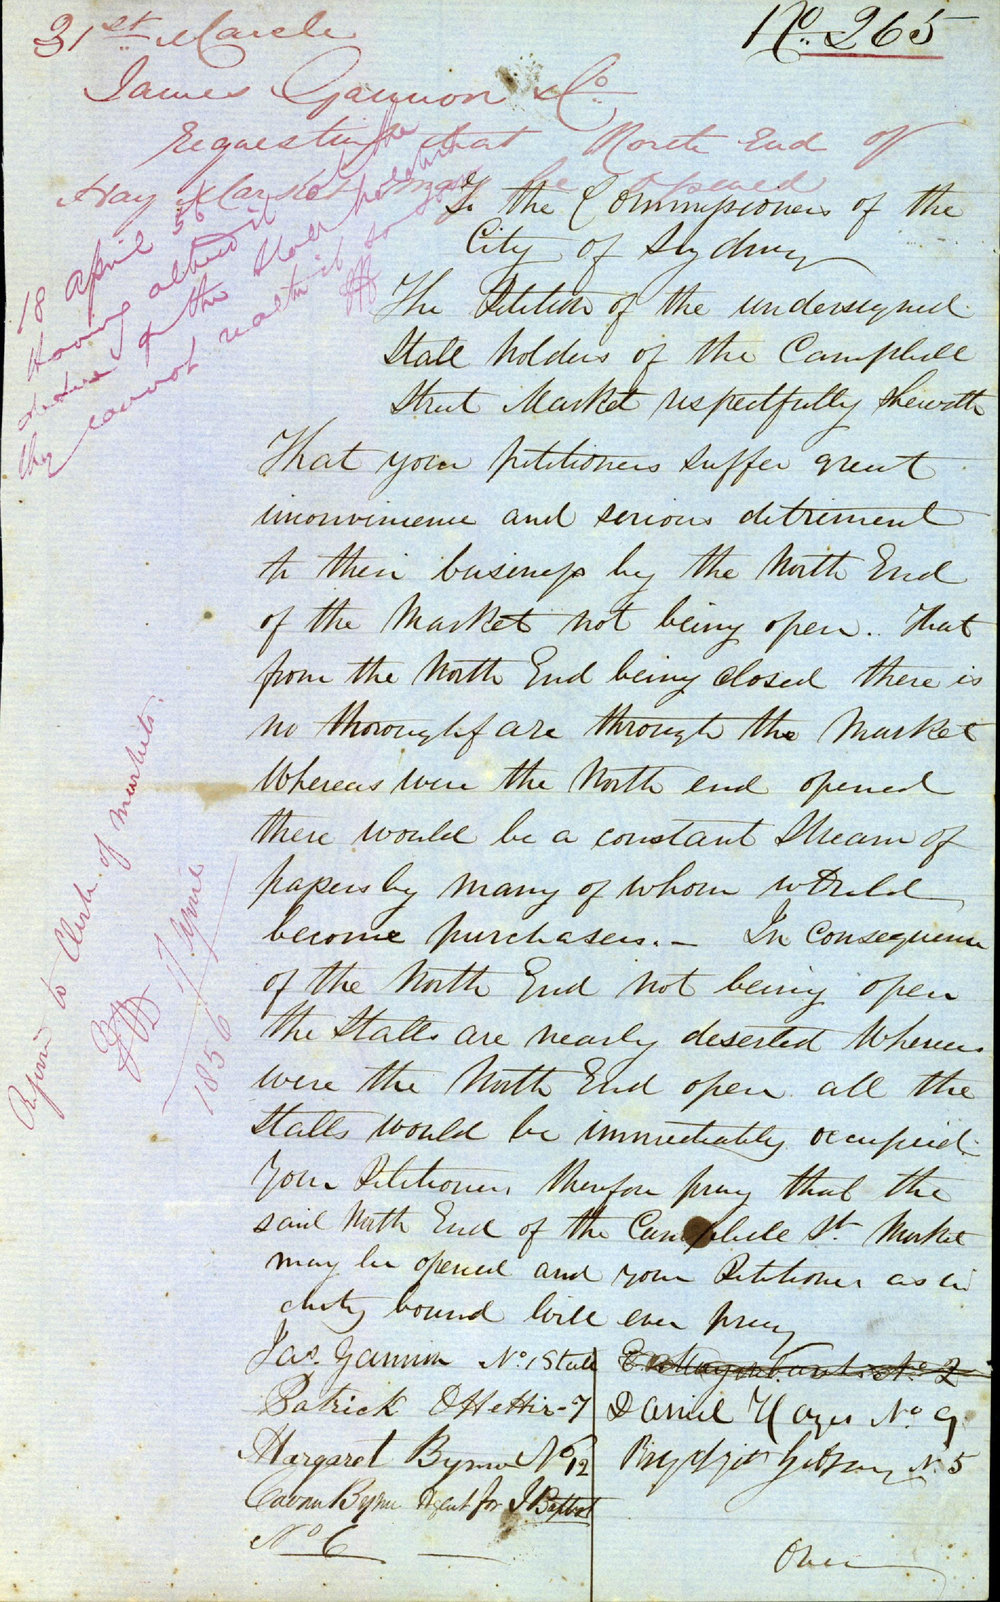 31st March
No. 265
James Gannon & Co
requesting that North End of
Hay Market may be opened
18 April 56
Having altered it to the
desire of the Stall holders
they cannot
To the Commissioners of the
City of Sydney
The Petition of the undersigned
Stall holders of the Campbell
Street Market respectfully sheweth
That your petitioners suffer great
inconvenience and serious detriment
to their business by the North End
of the Market not being open. That
from the North End being closed there is
no thoroughfare through the Market
Whereas were the North end opened
there would be a constant Stream of
passers by many of whom would
become purchasers. – In Consequence
of the North End not being open
the Stalls are nearly deserted Whereas
were the North End open all the
Stalls would be immediately occupied.
Your Petitioners therefore pray that the
said North End of the Campbell St. Market
may be opened and your Petitioners as in
duty bound will ever pray
Report to Clerk of markets.
17 April
1856
Jas. Gannon No. 1 Stall
Patrick OHehir - 7
Margaret Byrne No 12
Byrne Agent for J Baptist
No 6
No 2
Daniel Hayes No 9
No 5
Over